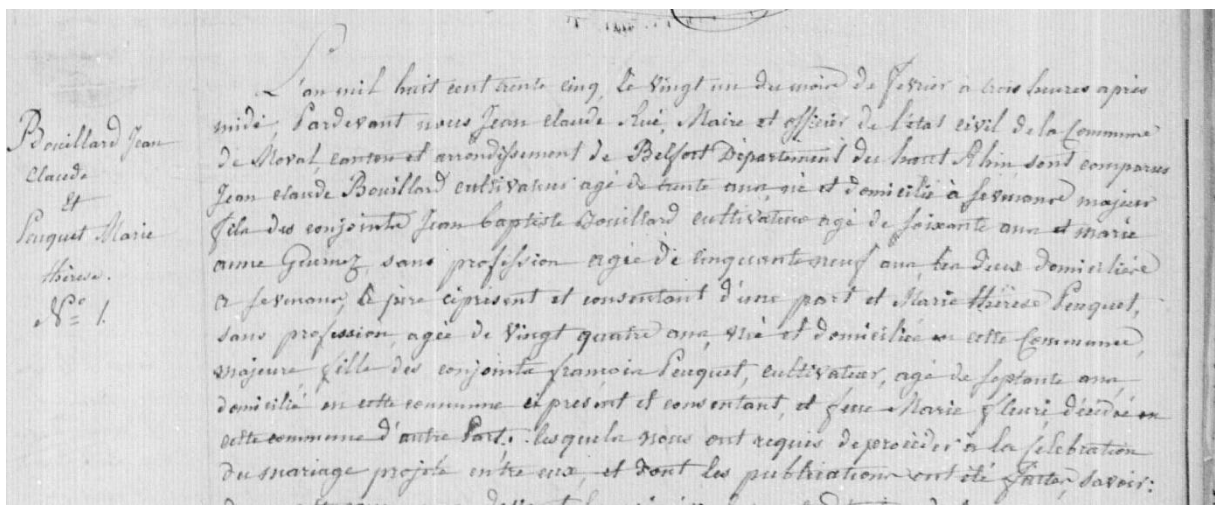 Bouillard Jean
Claude
Et
Peuquet Marie
thérèse.
N.° 1.
L'an mil huit cent trente cinq, le vingt un du mois de fevrier à trois heures après
midi, Pardevant nous Jean Claude Rué, Maire et officier de l'état civil de la Commune
de Moval canton et arrondissement de Belfort Département du haut Rhin, sont comparus
Jean Claude Bouillard cultivateur agé de trente ans né et domicilié à sevenans majeur
fils des conjoints Jean baptiste Bouillard cultivateur agé de soixante ans et marie
anne sans profession agée de cinquante neuf ans, les deux domiciliés
a sevenans, le père ciprésent et consentant d'une part et Marie thérèse Peuquet,
sans profession, agée de vingt quatre ans, née et domiciliée en cette Commune,
majeure fille des conjoints françois Peuquet, cultivateur, agé de septante ans,
domicilié en cette commune ciprésent et consentant, et feue Marie fleuri décédée en
cette commune d'autre Part. lesquels nous ont requis de procéder à la celebration
du mariage projeté entre eux, et dont les publications ont été faites, savoir: